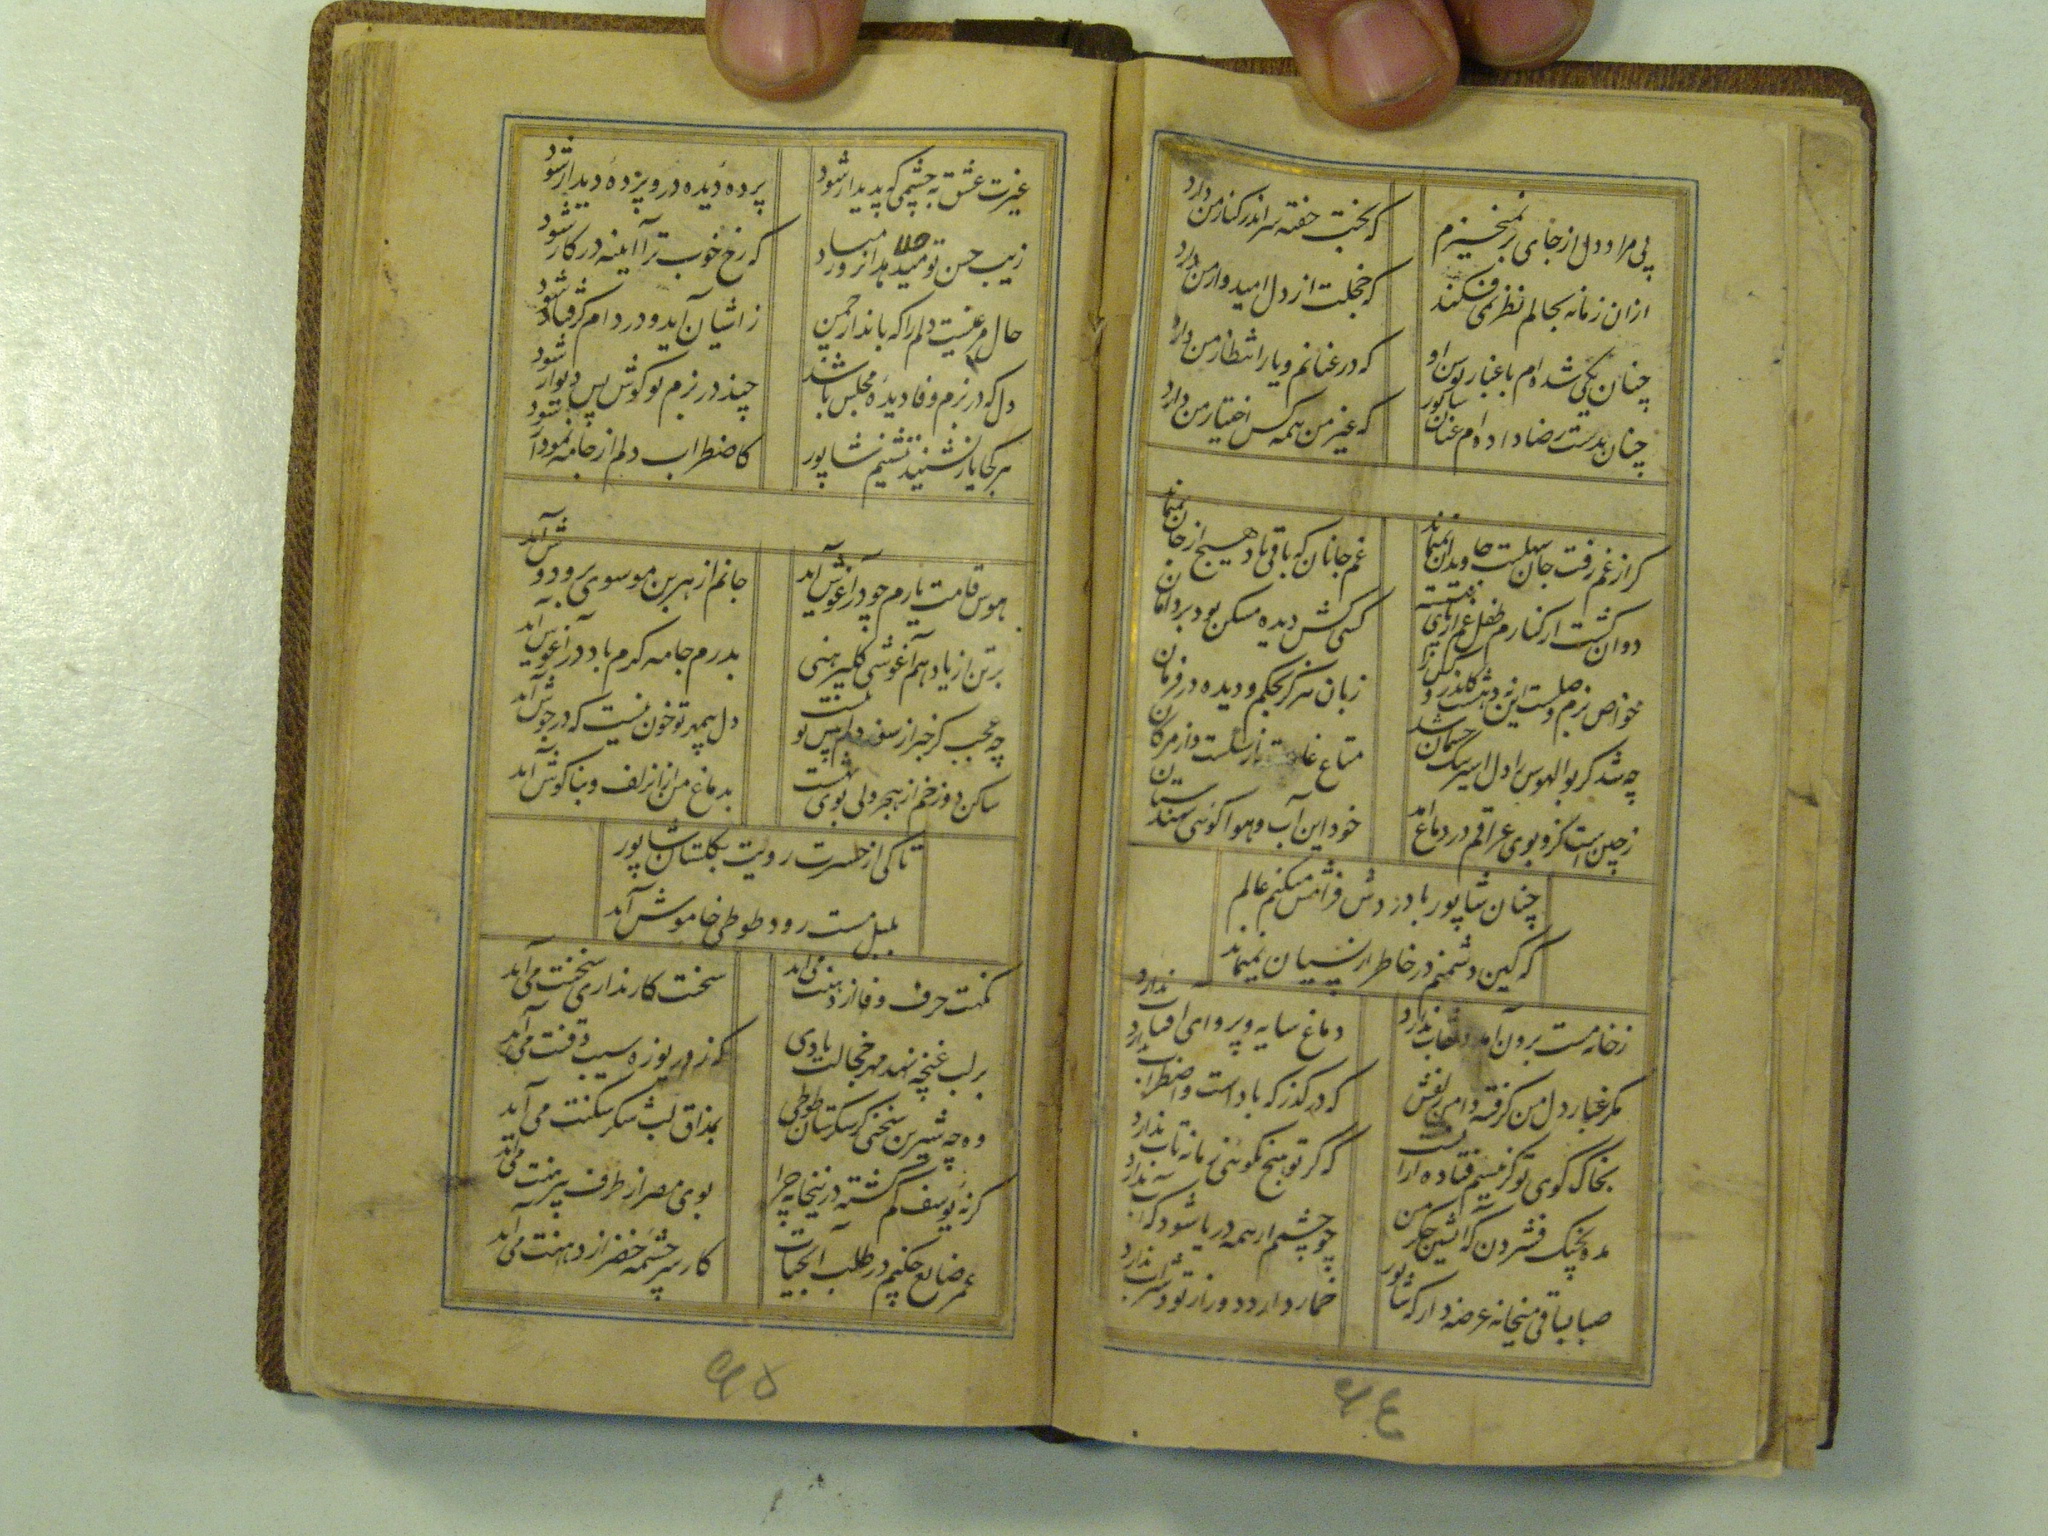 پی مراد دل از جای بر نمیخیزم
که بخت خفته سر اندر کنار من دارد
ازان زمانه بحالم نظر نمی فکند
که خجلت از دل امیدوار من دارد
چنان یکی شده ام با غبار توسن او
که در عنانم و یار انتظار من دارد
چنان بدست رضا داده ام عنان شاپور
که غیر من همه کس اختیار من دارد
کر از غم رفت جان سهلست جاویدان نمیماند
غم جانان که باقی باد هیچ از جان نمیماند
دوان کشت از کنارم طفل
کسی کش دیده مسکن بود بر دامان
خواص بزم وصلست این
زبان هر کز بحکم و دیده در فرمان
چه شد کر بوالهوس را دل اسیر
متاع
ز چین است کرو بوی عراقم در دماغ آمد
خود این آب و هوا کوئی
چنان شاپور با دزدش فرامش میکنم عالم
که کین دشمنم در خاطر از نسیان نمیماند
ز خانه مست برون آمد و نقاب ندارد
دماغ سایه و پروای آفتاب ندارد
مکر غبار دل من کرفته دامن زلفش
که در کذرکه باد است و اضطراب ندارد
بخاک کوی تو کر نیستم فتاده
که کر تو هیچ نکوئی زمانه تاب ندارد
مده بخنک فشردن که آتشین جکر من
چو چشم ار همه دریا شود که آب ندارد
صبا بساقی میخانه عرضه دار که شاپور
خمار دارد و دور از تو شراب ندارد
۹۴
غیرت عشق به چشمی که پدیدار شود
پرده دیده دریوزه دیدار شود
زیب حسن تو
که رخ خوب ترا آینه در کار شود
حال مرغیست دلم را که بانداز چمن
ز آشیان آید و در دام کرفتار شود
دل که در بزم وفا دیده مجلس باشد
چند در بزم تو کوش پس دیوار شود
هر کجا یار نشیند ننشینم شاپور
کاضطراب دلم از جامه نمودار شود
هوس قامت یارم چو در آغوش آید
جانم از هر بن مو سوی بر و دوش آید
بر تن از یاد هم آغوشی کلپیرهنی
بدرم جامه کرم باد در آغوش آید
چه عجب کر خبر از سوز دلم نیست
دل بیمهر تو خون نیست که در جوش آید
ساکن دوزخم از هجر ولی بوی بهشت
بدماغ من از ان زلف و بناکوش آید
تا کی از حسرت رویت بکلستان شاپور
بلبل مست رود طوطی خاموش آید
نکهت حرف وفا از دهنت می آید
سخت کار نداری سخنت می آید
بر لب غنچه نهد مهر خجالت بادی
که ز دریوزه سیب ذقنت می آید
وه چه شیرین سخنی کز شکرستان طوطی
بمذاق لب شکر شکنت می آید
کر نه یوسف کم کشته درینجا چرا
بوی مصر از طرف پیرهنت می آید
عمر ضایع چکنیم در طلب آب حیات
کار سرچشمه خضر از دهنت می آید
۹۵